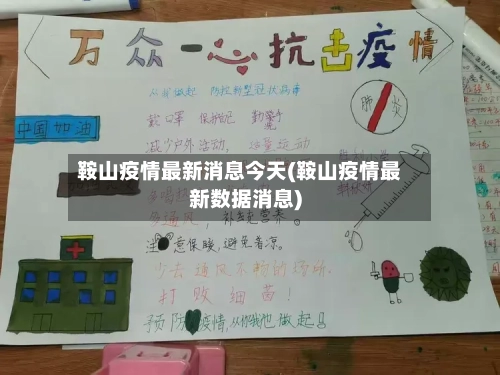 万众一心抗击疫情
从我做起 防控新型冠状病毒
戴口罩 保持距 勤
肺炎
中国加油
减少户外活动,适量运动
鞍山疫情最新消息今天(鞍山疫情最
新数据消息)
多通风,补充营养。
注意保暖,避免着凉。
少去通风不畅的场所。
打败细菌!
预防疫情,从你我他做起!